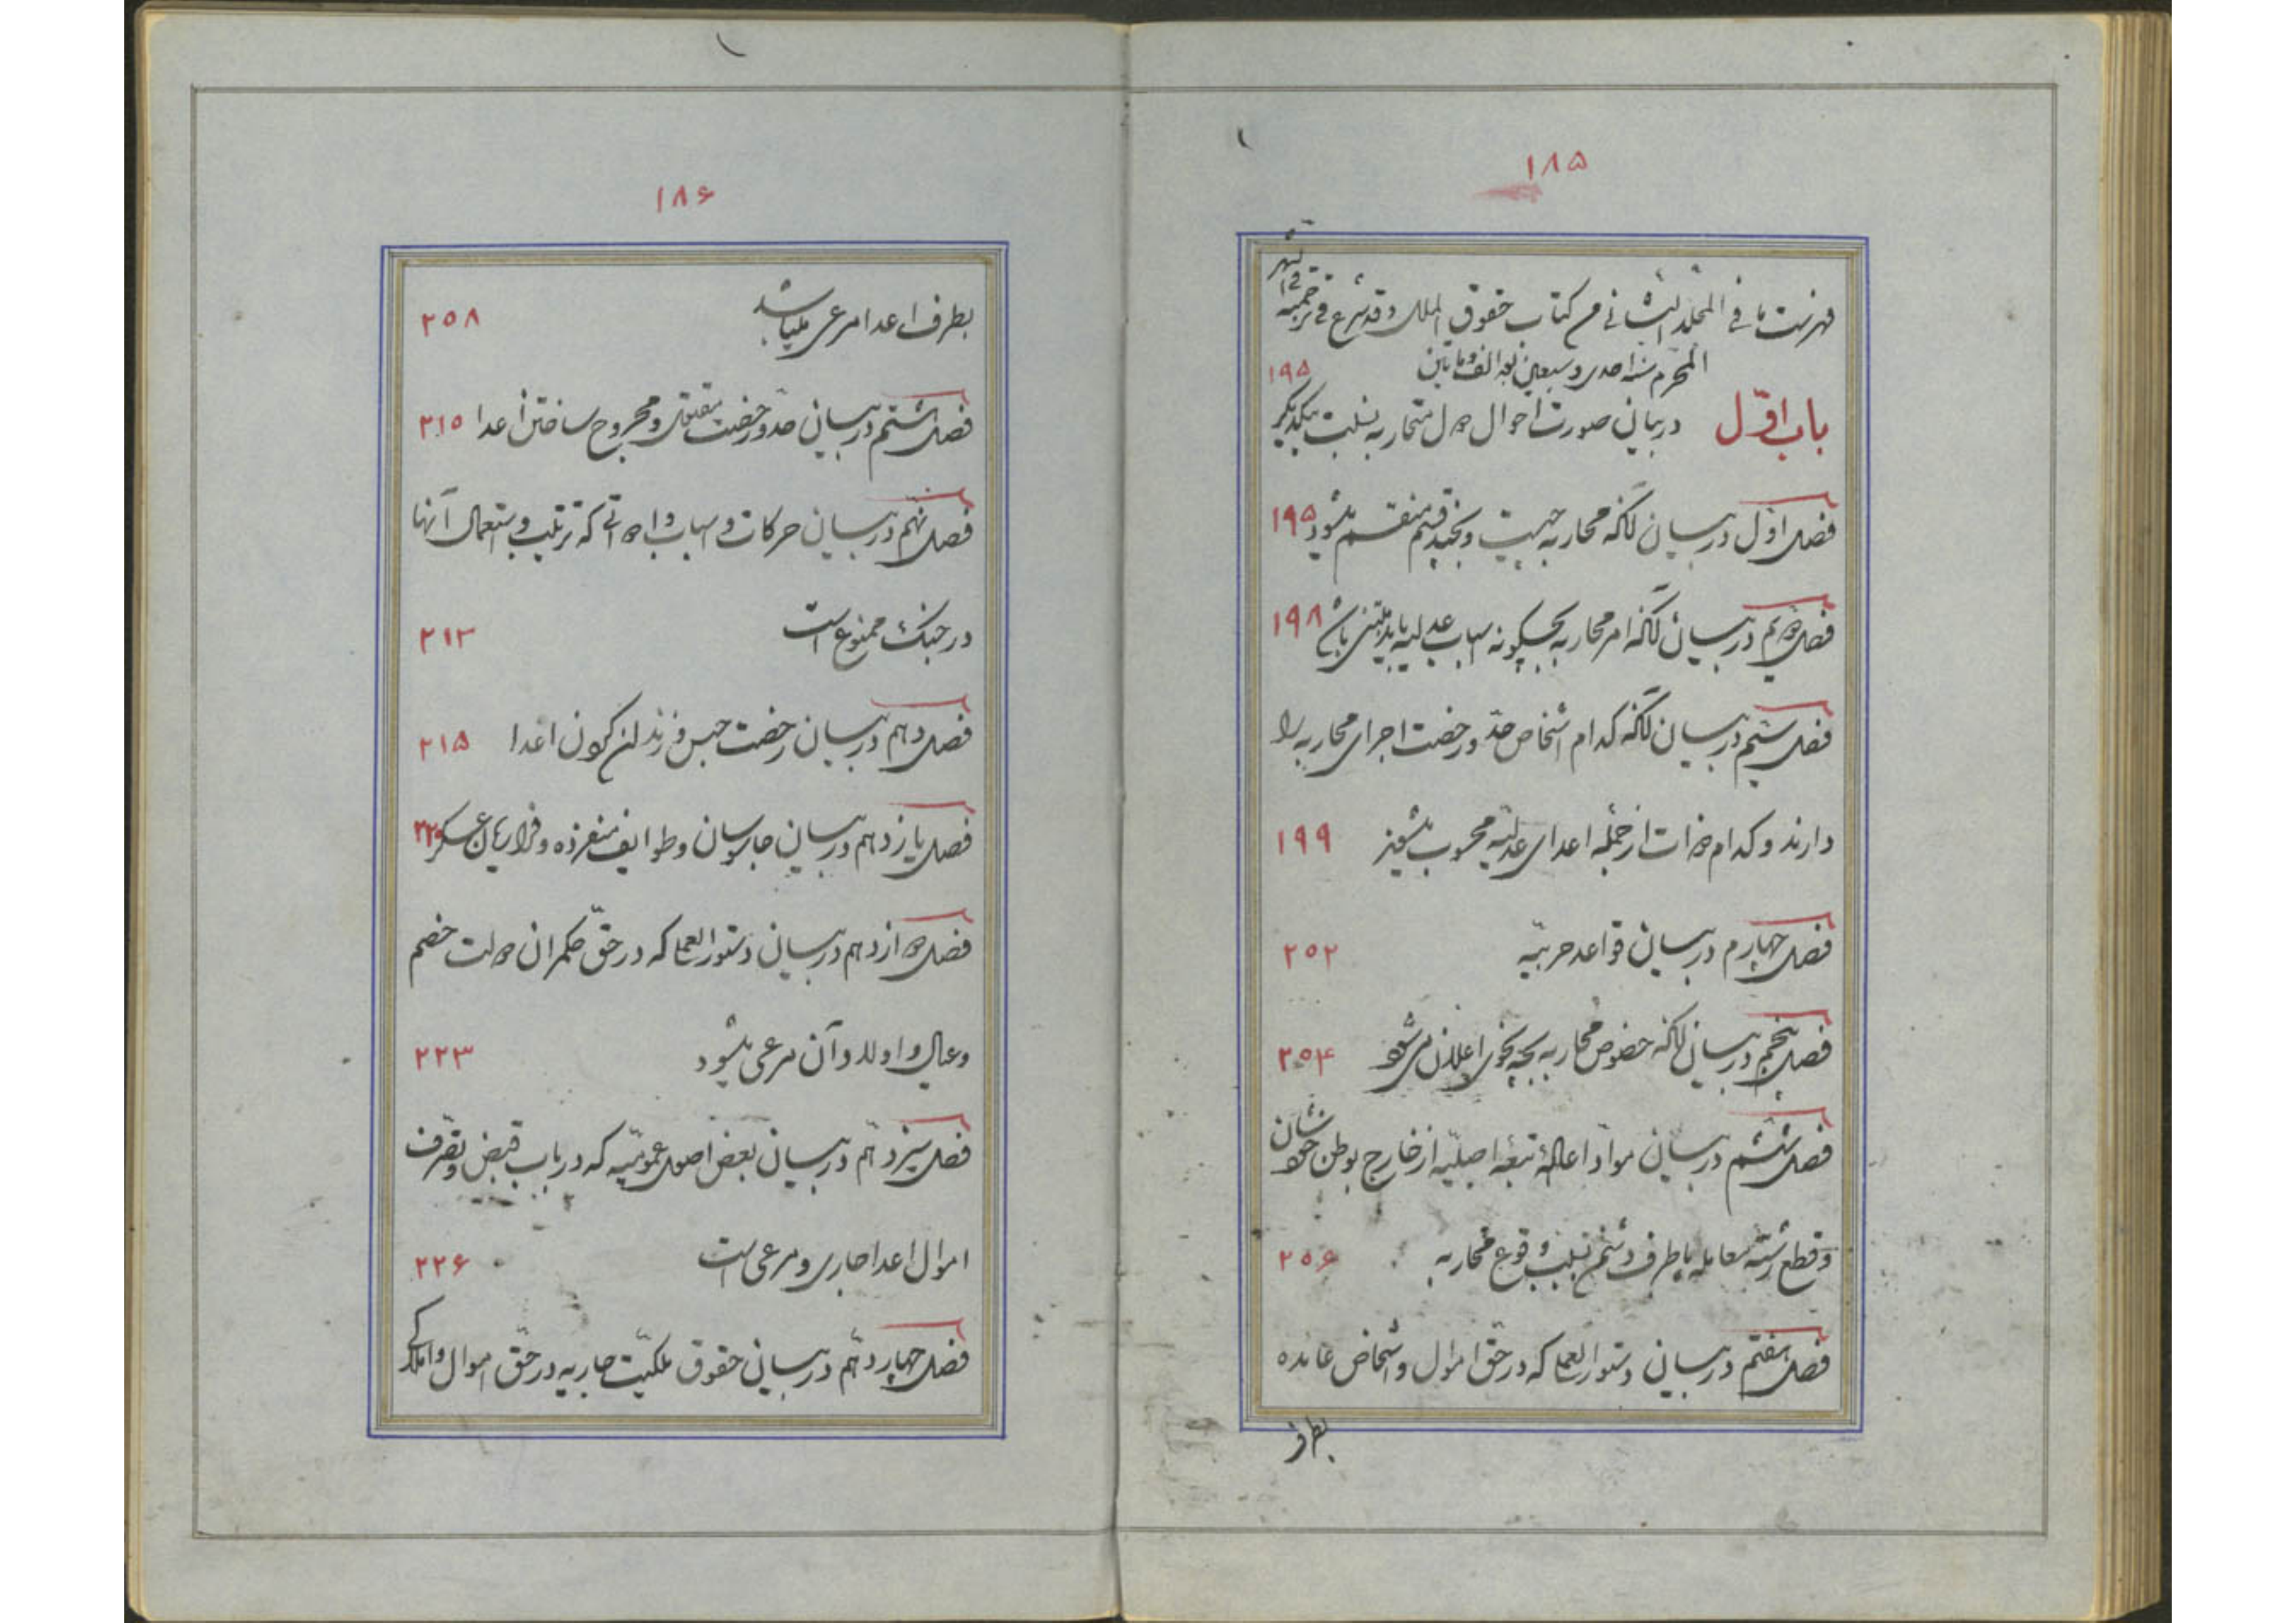 ۱۸۵
فهرست ما فی المجلد الثانی من کتاب حقوق الملل و قد شرع فی ترجمته فی شهر
المحرم سنه احدی و سبعین بعد الف و مأتین
باب اول در بیان صورت احوال دول متحاربه بنسبت یکدیگر ۱۹۵
فصل اول در بیان آنکه محاربه چیست و بچند قسم منقسم میشود ۱۹۵
فصل دویم در بیان آنکه امر محاربه بچگونه اسباب عدلیه باید مبتنی باشد ۱۹۸
فصل سیم در بیان آنکه کدام اشخاص حد و رخصت اجرای محاربه را
دارند و کدام ذوات از جمله اعدای عدلیه محسوب میشوند ۱۹۹
فصل چهارم در بیان قواعد حربیه ۲۰۲
فصل پنجم در بیان آنکه خصوص محاربه بچه نحوی اعلان می شود ۲۰۴
فصل ششم در بیان مواد اعاله تبعه اصلیه از خارج بوطن خودشان
و قطع رشته معامله با طرف دشمن بسبب وقوع محاربه ۲۰۶
فصل هفتم در بیان دستورالعملی که در حق اموال و اشخاص عائده
بطرف
۱۸۶
بطرف اعدا مرعی میباشد ۲۰۸
فصل هشتم در بیان حد و رخصت بقتل و مجروح ساختن اعدا ۲۱۰
فصل نهم در بیان حرکات و اسباب و ادواتی که ترتیب و استعمال آنها
در جنگ ممنوع است ۲۱۳
فصل دهم در بیان رخصت حبس و زندان کردن اعدا ۲۱۵
فصل یازدهم در بیان جاسوسان و طوایف منفرده و فراریان عسکر ۲۲۰
فصل دوازدهم در بیان دستورالعملی که در حق حکمران دولت خصم
و عیال و اولاد آن مرعی میشود ۲۲۳
فصل سیزدهم در بیان بعض اصول عمومیه که در باب قبض و تصرف
اموال اعدا جاری و مرعی است ۲۲۶
فصل چهاردهم در بیان حقوق ملکیت حاربیه در حق اموال و املاک